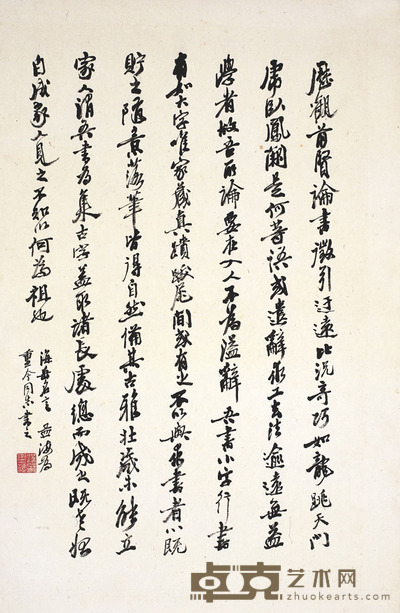 歷觀前賢論書徵引迂遠比況奇巧如龍跳天門
虎臥鳳闕是何等語或遣辭求工去法逾遠無益
學者故吾所論要在入人不為溢辭吾書小字行書
有如大字唯家藏真蹟跋尾間或有之不以與求書者心既
貯之隨意落筆皆得自然備其古雅壯歲未能立
家人謂吾書為集古字蓋取諸長處總而成之既老始
自成家人見之不知以何為祖也
海岳名言
同志書之
卓克艺术网
zhuokearts.com